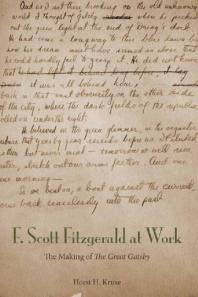 And as I sat there brooding on the old unknown
world I thought of Gatsby when he picked
out the green light at the end of Daisy's dock.
He had come a long way to this blue lawn
his dream must have seemed so close that
he could hardly fail to grasp it. He did not know
that he had left it behind
it was all behind him,
back in that vast obscurity on the other side
of the city, where the dark fields of the republic
rolled on under the night.
He believed in the green glimmer, in the orgastic
future that year by year recedes before us. It eluded
then but never mind - tomorrow we will run
faster, stretch out our arms farther, And one
fine morning -
So we beat on, a boat against the current,
borne back ceaselessly into the past.
F. Scott Fitzgerald at Work
The Making of The Great Gatsby
Horst H. Kruse